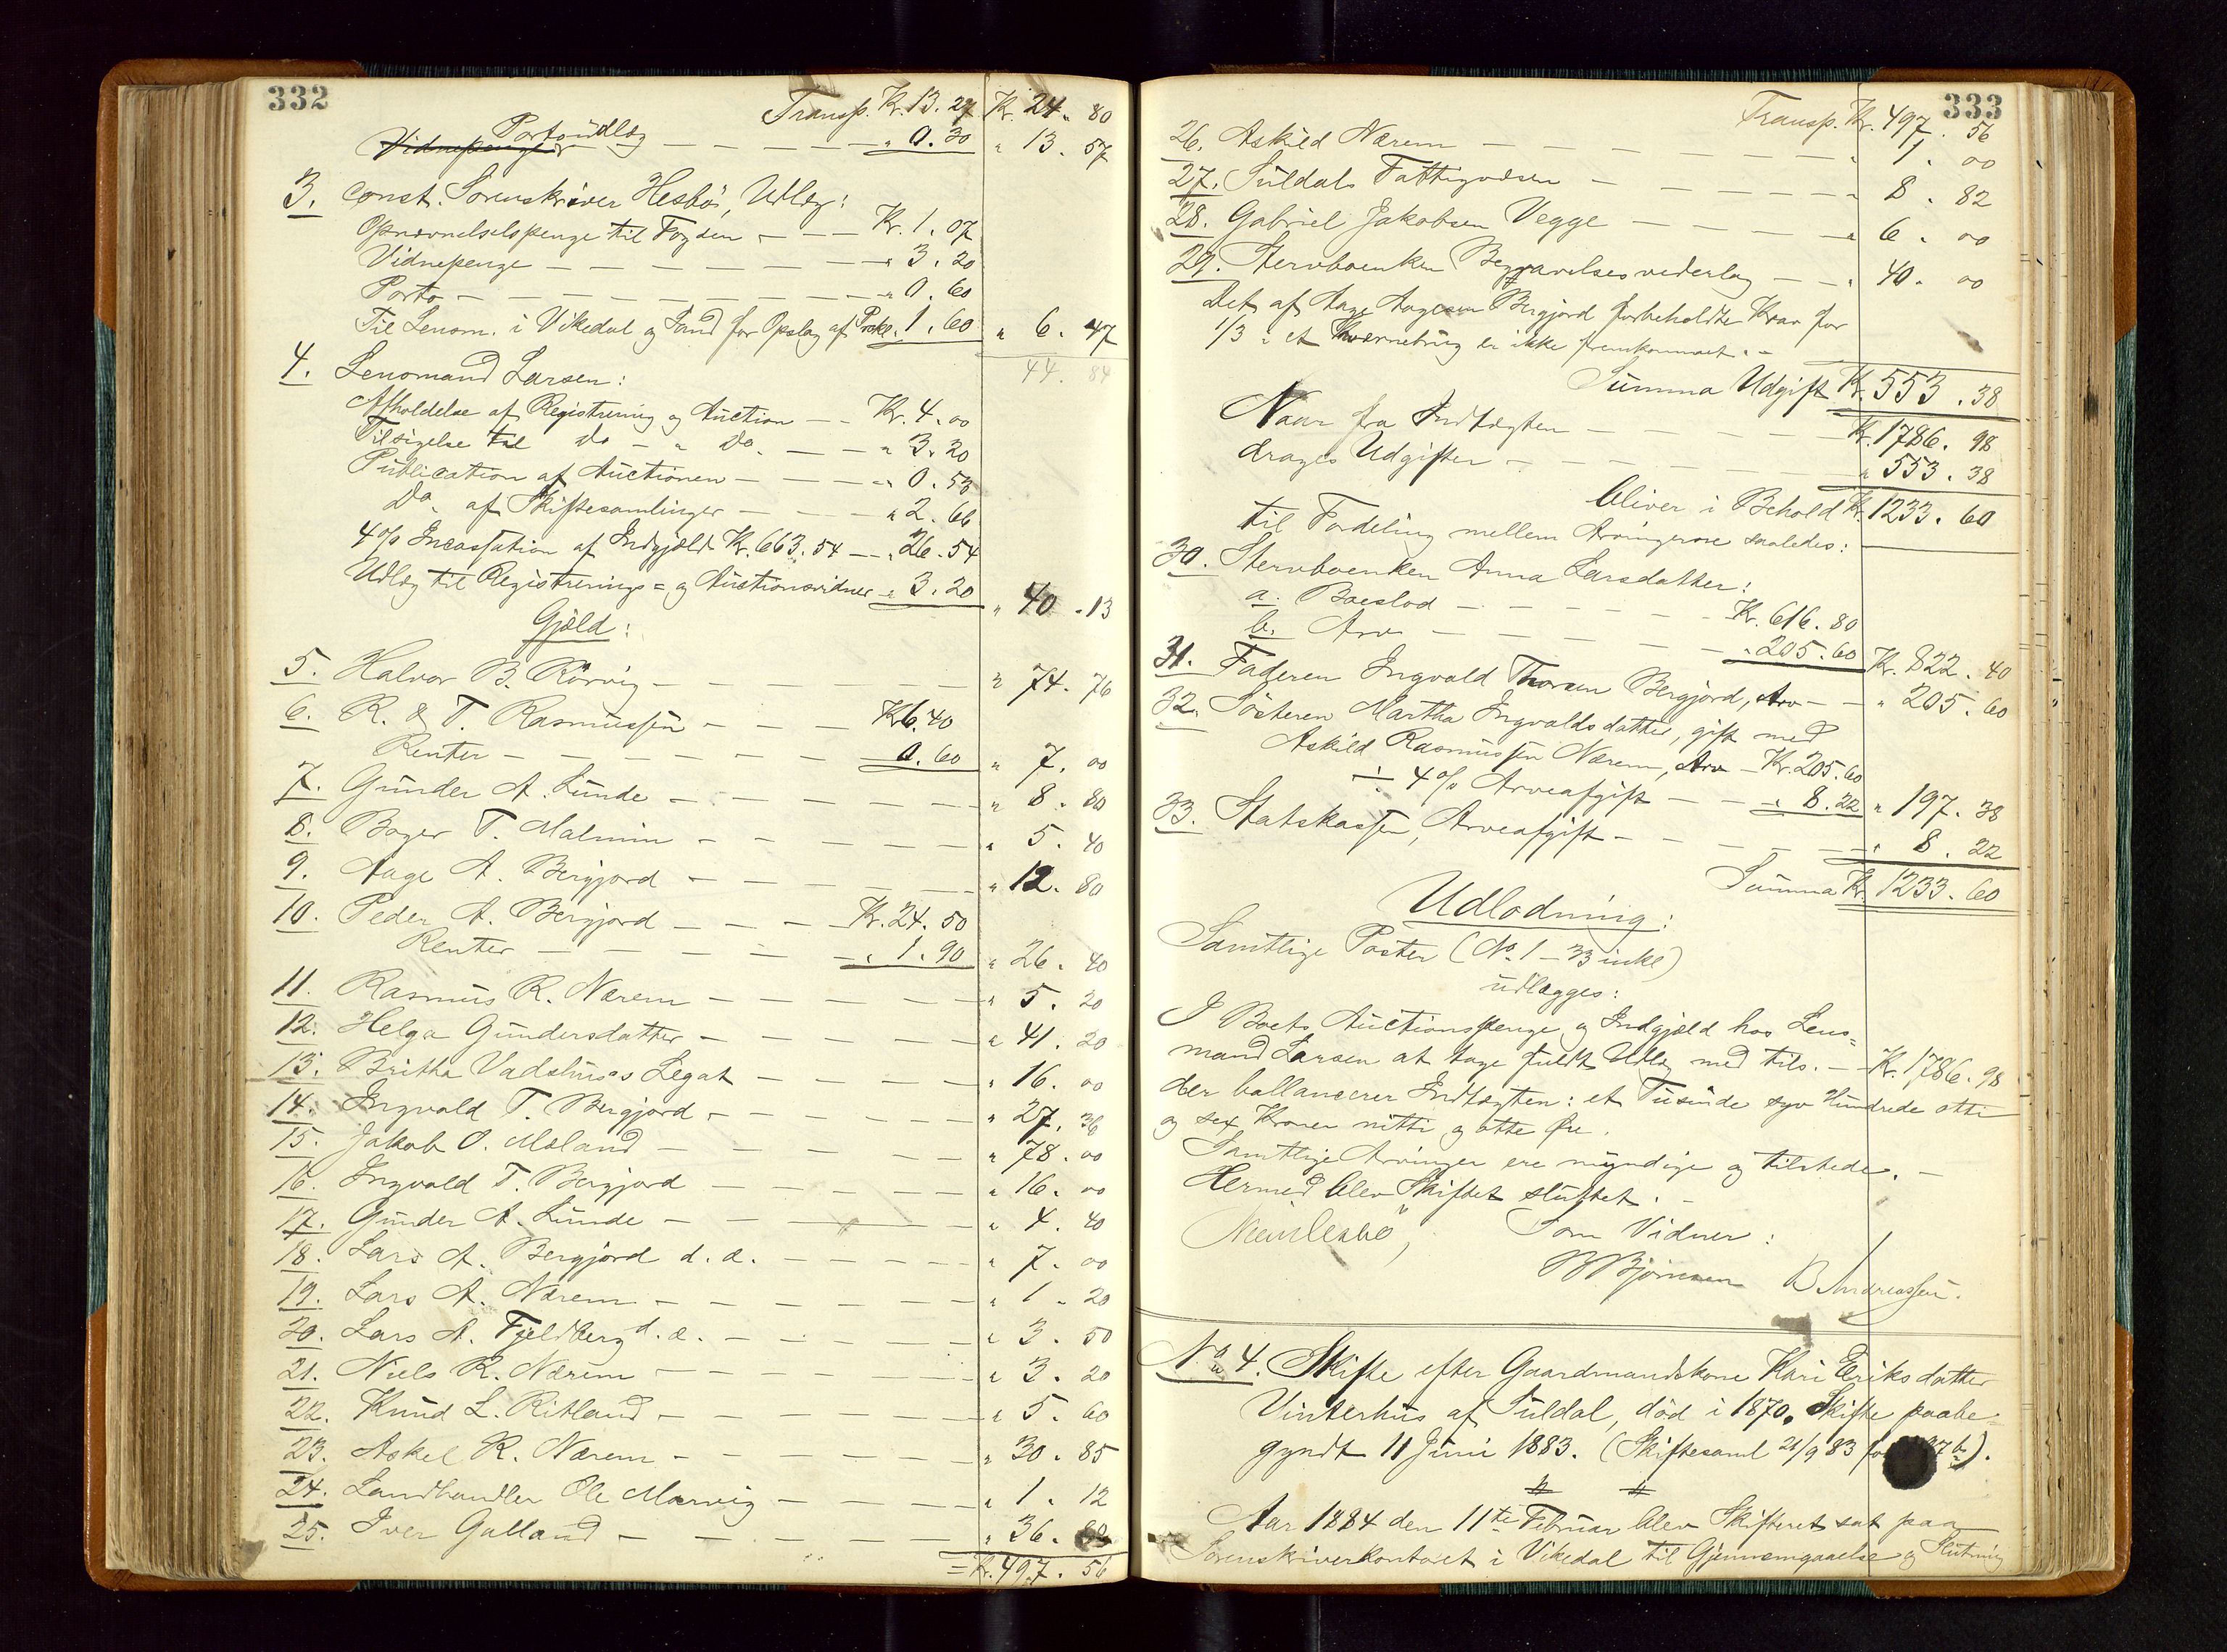 332
Transp. Kr. 13.27 Kr. 24. 80
Vidnepenge Portoudlæg — — — " 0.30 " 13. 57
3. const. Sorenskriver Hesbö, Udlæg:
Opnævnelsespenge til Fogden — — Kr. 1. 07
Vidnepenge — — — — — " 3. 20
Porto — — — — — — " 0. 60
Til Lensm. i Vikedal og Sand for Opslag af Prokl. 1. 60 " 6. 47
44. 84
4. Lensmand Larsen:
Afholdelse af Registrering og Auction — — Kr. 4. 00
Tilsigelse til do — " Do. — — " 3. 20
Publication af Auctionen — — — " 0. 53
Do. af Skiftesamlinger — — — " 2. 66
4 % Incassation af Indgjæld Kr. 663. 54 — " 26. 54
Udlæg til Registrerings= og Auctionsvidner " 3. 20 " 40. 13
Gjæld:
5. Halvor B. Rörvig — — — — — " 74. 76
6. R. & T. Rasmussen — — — Kr. 6.40
Renter — — — — — — 0. 60 " 7. 00
7. Gunder A. Lunde — — — — — " 8. 80
8. Boger T. Malmin — — — — — " 5. 40
9. Aage A. Bergjord — — — — — " 12. 80
10. Peder A. Bergjord — — — Kr. 24. 50
Renter — — — — — " 1. 90 " 26. 40
11. Rasmus R. Nærem — — — — " 5. 20
12. Helga Gundersdatter — — — — " 41. 20
13. Britha Vadshus's Legat — — — — " 16. 00
14. Ingvald T. Bergjord — — — — " 27. 36
15. Jakob O. Mæland — — — — " 78. 00
16. Ingvald T. Bergjord — — — — " 16. 00
17. Gunder A. Lunde — — — — " 4. 40
18. Lars A. Bergjord d. æ. — — — — " 7. 00
19. Lars A. Nærem — — — — — " 1. 20
20. Lars A. Fjeldberg d. æ. — — — — " 3. 50
21. Niels R. Nærem — — — — — " 3. 20
22. Knud L. Ritland — — — — — " 5. 60
23. Askel R. Nærem — — — — — " 30. 85
24. Landhandler Ole Marvig — — — — " 1. 12
25. Iver Galland — — — — — " 36.
= Kr. 497. 56
333
Transp. Kr. 497. 56
26. Askild Nærem — — — — — " 1. 00
27. Suldals Fattigvæsen — — — — " 8. 82
28. Gabriel Jakobsen Vegge — — — — " 6. 00
29. Stervboenken Begravelsesvederlag — — " 40. 00
Det af Aage Aagesen Bergjord forbeholdte Krav for
1/3 i et Kværnebrug er ikke fremkommet. —
Summa Udgift Kr. 553. 38
Naar fra Indtægten — — — — Kr. 1786. 98
drages Udgifter — — — — — " 553. 38
bliver i Behold Kr. 1233. 60
til Fordeling mellem Arvingerne saaledes:
30. Stervboenken Anna Larsdatter:
a. Boeslod — — — — — Kr. 616. 80
b. Arv — — — — — " 205. 60 Kr. 822. 40
31. Faderen Ingvald Thorsen Bergjord, Arv — — " 205. 60
32. Søsteren Martha Ingvaldsdatter, gift med
Askild Rasmussen Nærem, Arv — Kr. 205. 60
÷ 4 % Arveafgift — — " 8. 22 " 197. 38
33. Statskassen, Arveafgift — — — — " 8. 22
Summa Kr. 1233. 60
Udlodning:
Samtlige Poster (No. 1 — 33 inkl)
udlægges:
I Boets Auctionspenge og Indgjæld hos Lens=
mand Larsen at tage fuldt Udlæg med tils. — Kr. 1786. 98
der ballancerer Indtægten: et Tusinde syv Hundrede otti
og sex Kroner nitti og otte Øre.
Samtlige Arvinger ere myndige og tilstede. —
Hermed blev Skiftet sluttet. —
Som Vidner:
B Bjørnsen B Andreassen.
No. 4. Skifte efter Gaardmandskone Kari Eriksdatter
Vinterhus af Suldal, död i 1870. Skifte paabe=
gyndt 11 Juni 1883. (Skiftesaml 21/9 83 fo 7 b).
Aar 1884 den 11te Februar blev Skifteret sat paa
Sorenskriverkontoret i Vikedal til Gjennemgaaelse og Slutning